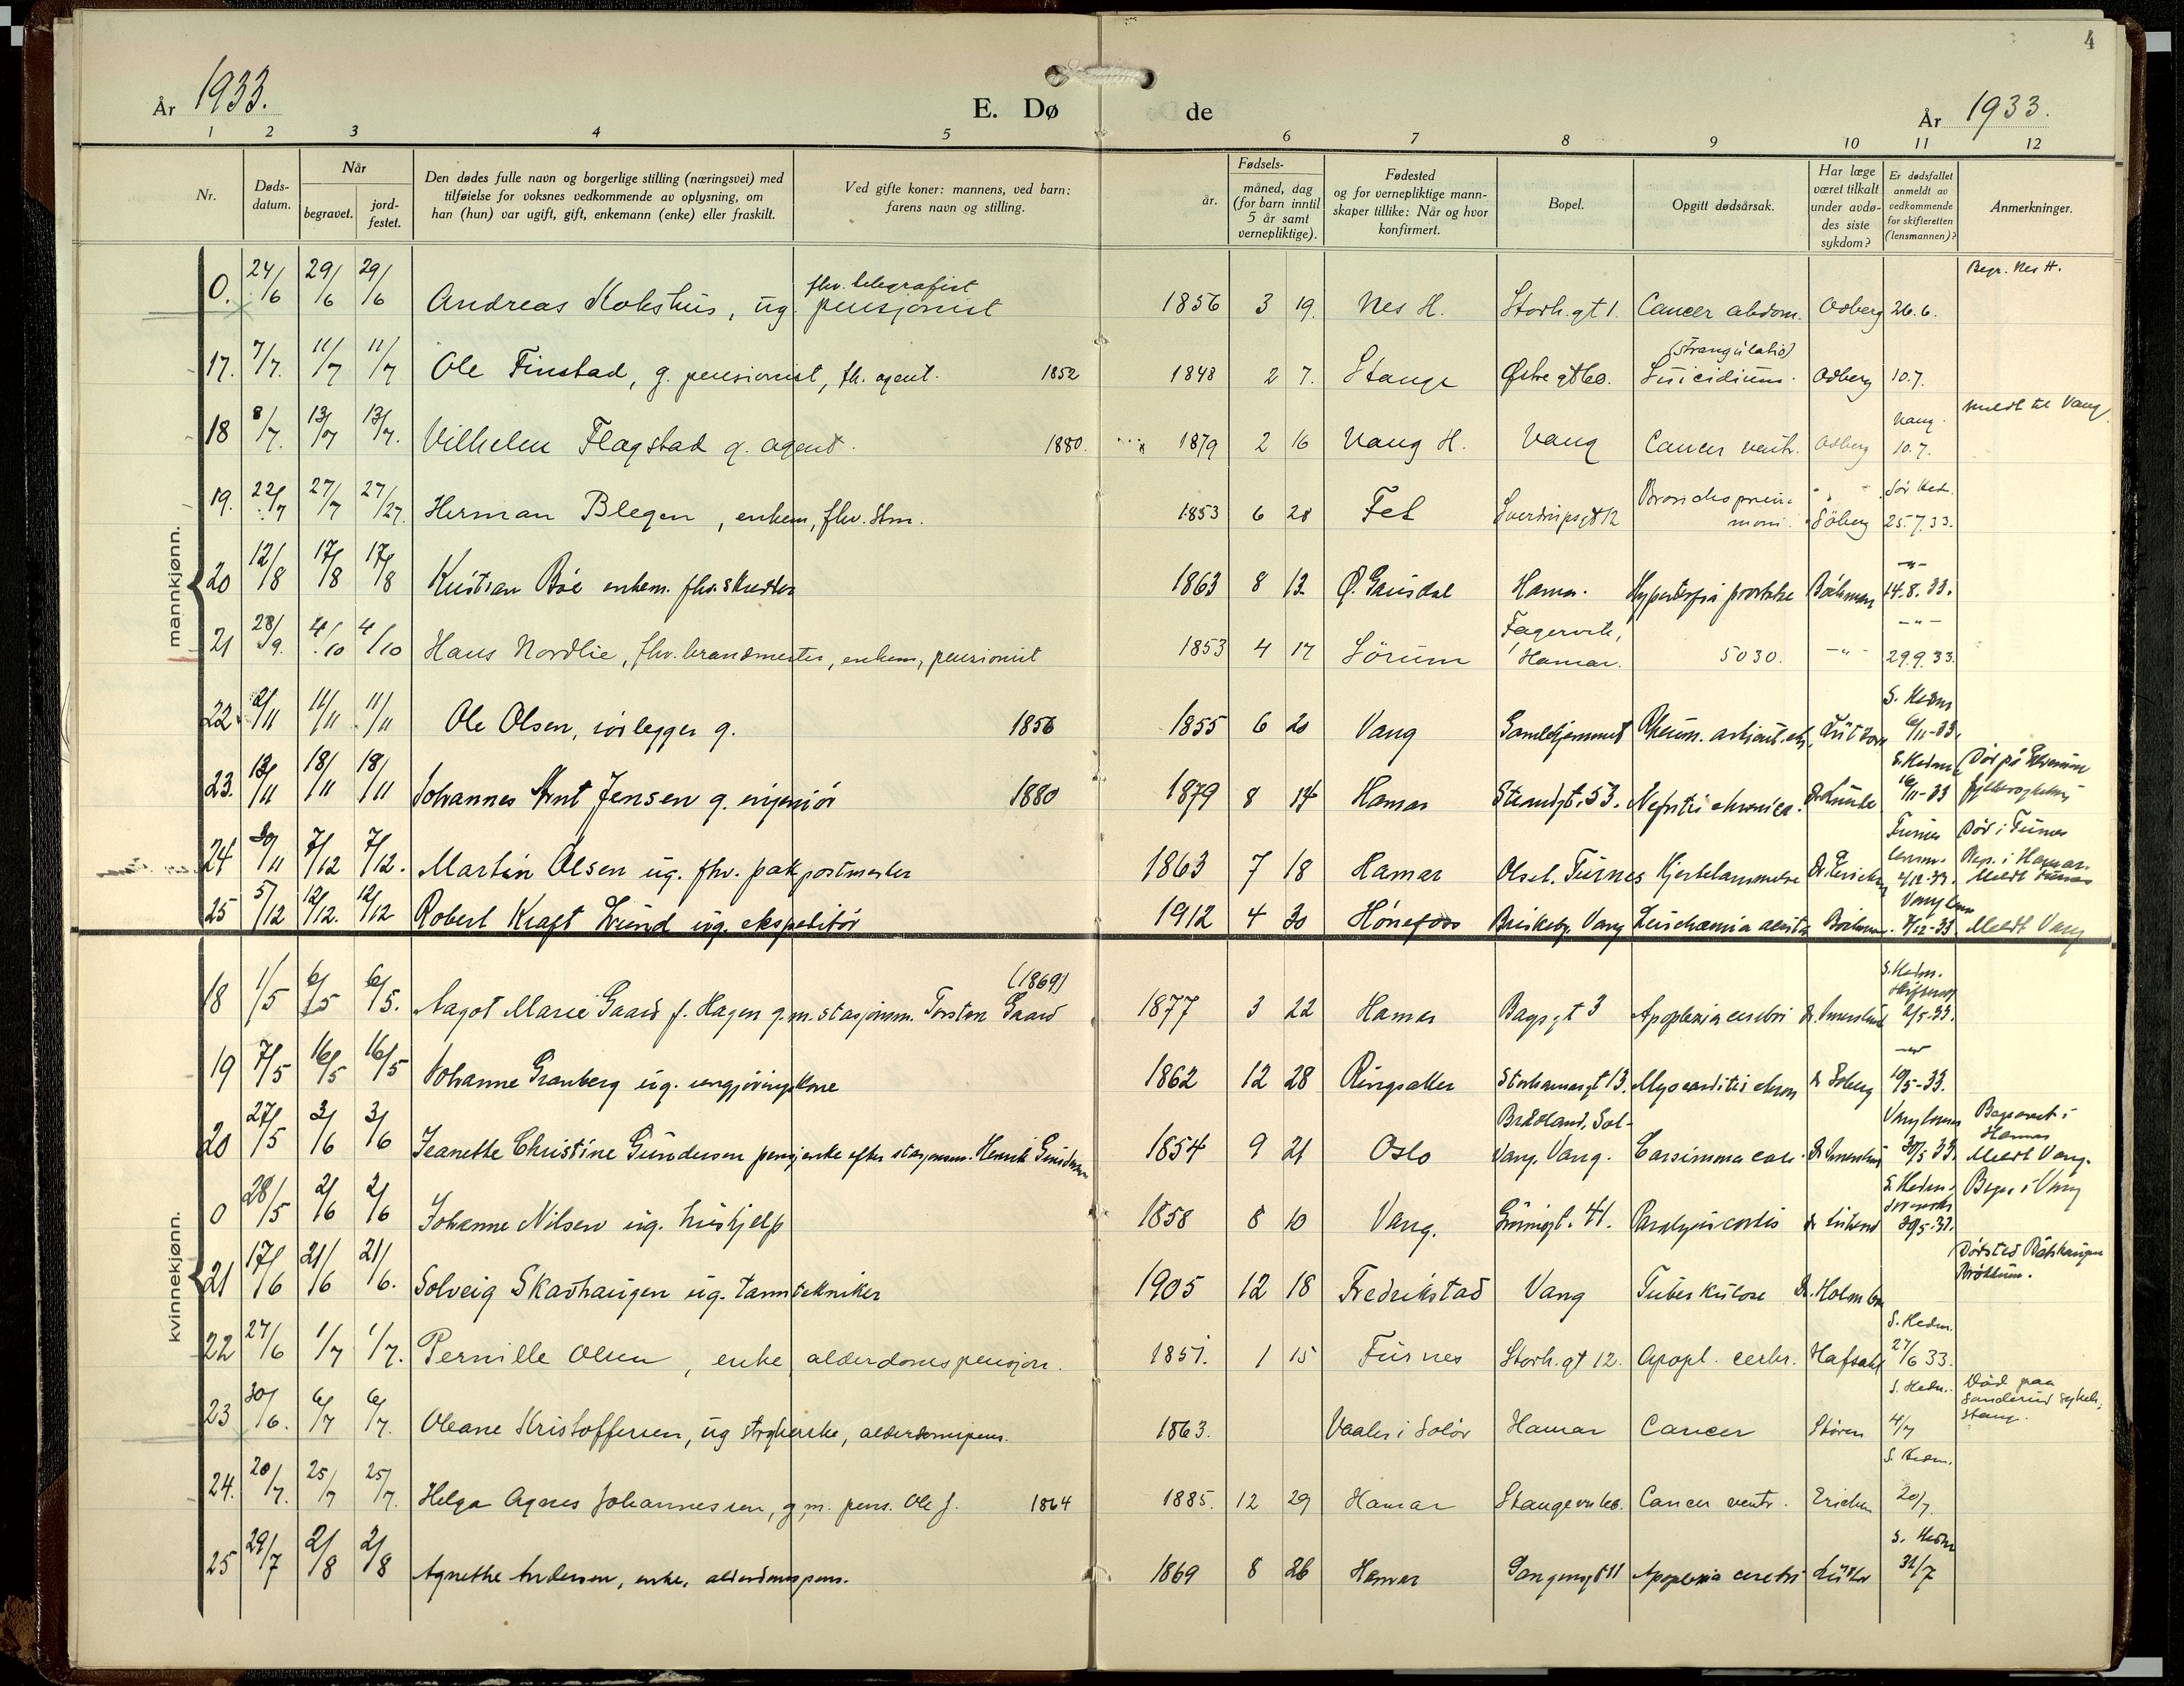 4
År 1933.
E. Dø de
År 1933.
1 2 3 4 5 6 7 8 9 10 11 12
Nr.
Døds-
datum.
Når
begravet.
jord-
festet.
Den dødes fulle navn og borgerlige stilling (næringsvei) med
tilføielse for voksnes vedkommende av oplysning, om
han (hun) var ugift, gift, enkemann (enke) eller fraskilt.
Ved gifte koner: mannens, ved barn:
farens navn og stilling.
Fødsels-
år.
måned, dag
(for barn inntil
5 år samt
vernepliktige).
Fødested
og for vernepliktige mann-
skaper tillike: Når og hvor
konfirmert.
Bopel.
Opgitt dødsårsak.
Har læge
været tilkalt
under avdø-
des siste
sykdom?
Er dødsfallet
anmeldt av
vedkommende
for skifteretten
(lensmannen)?
Anmerkninger.
mannkjønn.
0. 24/6 29/6 29/6 Andreas Kolshus, ug. fhv. telegrafist pensjonist 1856 3 19. Nes H. Storh.gt 1. Cancer abdom. Odberg 26.6. Begr. Nes H.
17. 7/7. 11/7 11/7 Ole Finstad, g. pensionist, fh. agent. 1852 1848 2 7. Stange Østre gt 60. (Strangulatio) Suicidium. Odberg 10.7.
18 8/7. 13/7 13/7. Vilhelm Flagstad g. agent. 1880. 1879 2 16 Vang H. Vang Cancer ventr. Odberg Vang. 10.7. meldt til Vang
19. 22/7 27/7 27/27. Herman Blegen, enkem, fhv. 1853 6 28 Fet Sverdrupsgt 12 Söberg 25.7.33.
20 12/8 17/8 17/8 Kristian Böe enkem. fhv. 1863 8 13 Ø. Gausdal Hamar. Hypertrofia prostatae 14.8.33.
21 28/9. 4/10 4/10 Hans Nordlie, fhv. brandmester, enkem, pensionist 1853 4 17 Sörum Fagervik, Hamar. 5030. -"- -"- 29.9.33.
22 2/11 11/11 11/11 Ole Olsen, g. 1856 1855 6 20 Vang Gamlehjemmet S. Hedm 6/11-33.
23. 13/11 18/11 18/11 Johannes Arnt Jensen g. ingeniör 1880 1879 8 14 Hamar Strandgt. 53. Nefritis chronica. S. Hedm 16/11-33 Död på
24 30/11 7/12 7/12. Martin Olsen ug. fhv. pakpostmester 1863 7 18 Hamar Furnes Hjertelammelse Furnes Död i Furnes Begr. i Hamar. Meldt Furnes
25 5/12 12/12. 12/12 Robert Kraft Lund ug. ekspeditör 1912 4 30 Hönefoss Briskeby, Vang Meldt Vang
kvinnekjønn.
18 1/5 6/5 6/5. Aagot Marie Gaard f. Hagen g.m. stasjonsm. Torsten Gaard (1869) 1877 3 22 Hamar Bagsgt 3 Apoplexia cerebri S. Hedm. 2/5-33.
19 7/5 16/5 16/5 Johanne Granberg ug. rengjöringskone 1862 12 28 Ringsaker Storhamargt 13. Myocarditis chron 10/5-33.
20 27/5 3/6 3/6 Jeanette Christine Gundersen pensj. enke efter Henrik Gundersen 1854 9 21 Oslo Vang. Vang. 30/5 33. Begravet i Hamar Meldt Vang.
0 28/5 2/6 2/6 Johanne Nilsen ug. hushjelp 1858 8 10 Vang. Grönnegt. 41. Paralysis cordis S. Hedm. Begr. i Vang
21 17/6 21/6 21/6. Solveig Skavhaugen ug. tanntekniker 1905 12 18 Fredrikstad Vang Tuberkulose Dr. Holmboe Bröttum.
22 27/6 1/7 1/7. Pernille Olsen, enke, alderdomspensjon. 1851. 1 15 Furnes Storh. gt 12. Apopl. cerebr. Hafsahl S. Hedm. 27/6 33.
23 30/6. 6/7 6/7. Oleane Kristoffersen, ug strykerske, alderdomspens. 1863. Vaaler i Solör Hamar Cancer Stören S. Hedm. 4/7 Död paa Sanderud sykeh., Stange.
24. 20/7. 25/7 25/7. Helga Agnes Johannessen, g.m. pens. Ole J. 1864 1885. 12 29 Hamar Cancer ventr. Erichsen S. Hedm. 20/7.
25 29/7 2/8 2/8 Agnethe Andersen, enke, alderdomspens. 1869 8 26 Hamar Apoplexia cerebri S. Hedm 31/7